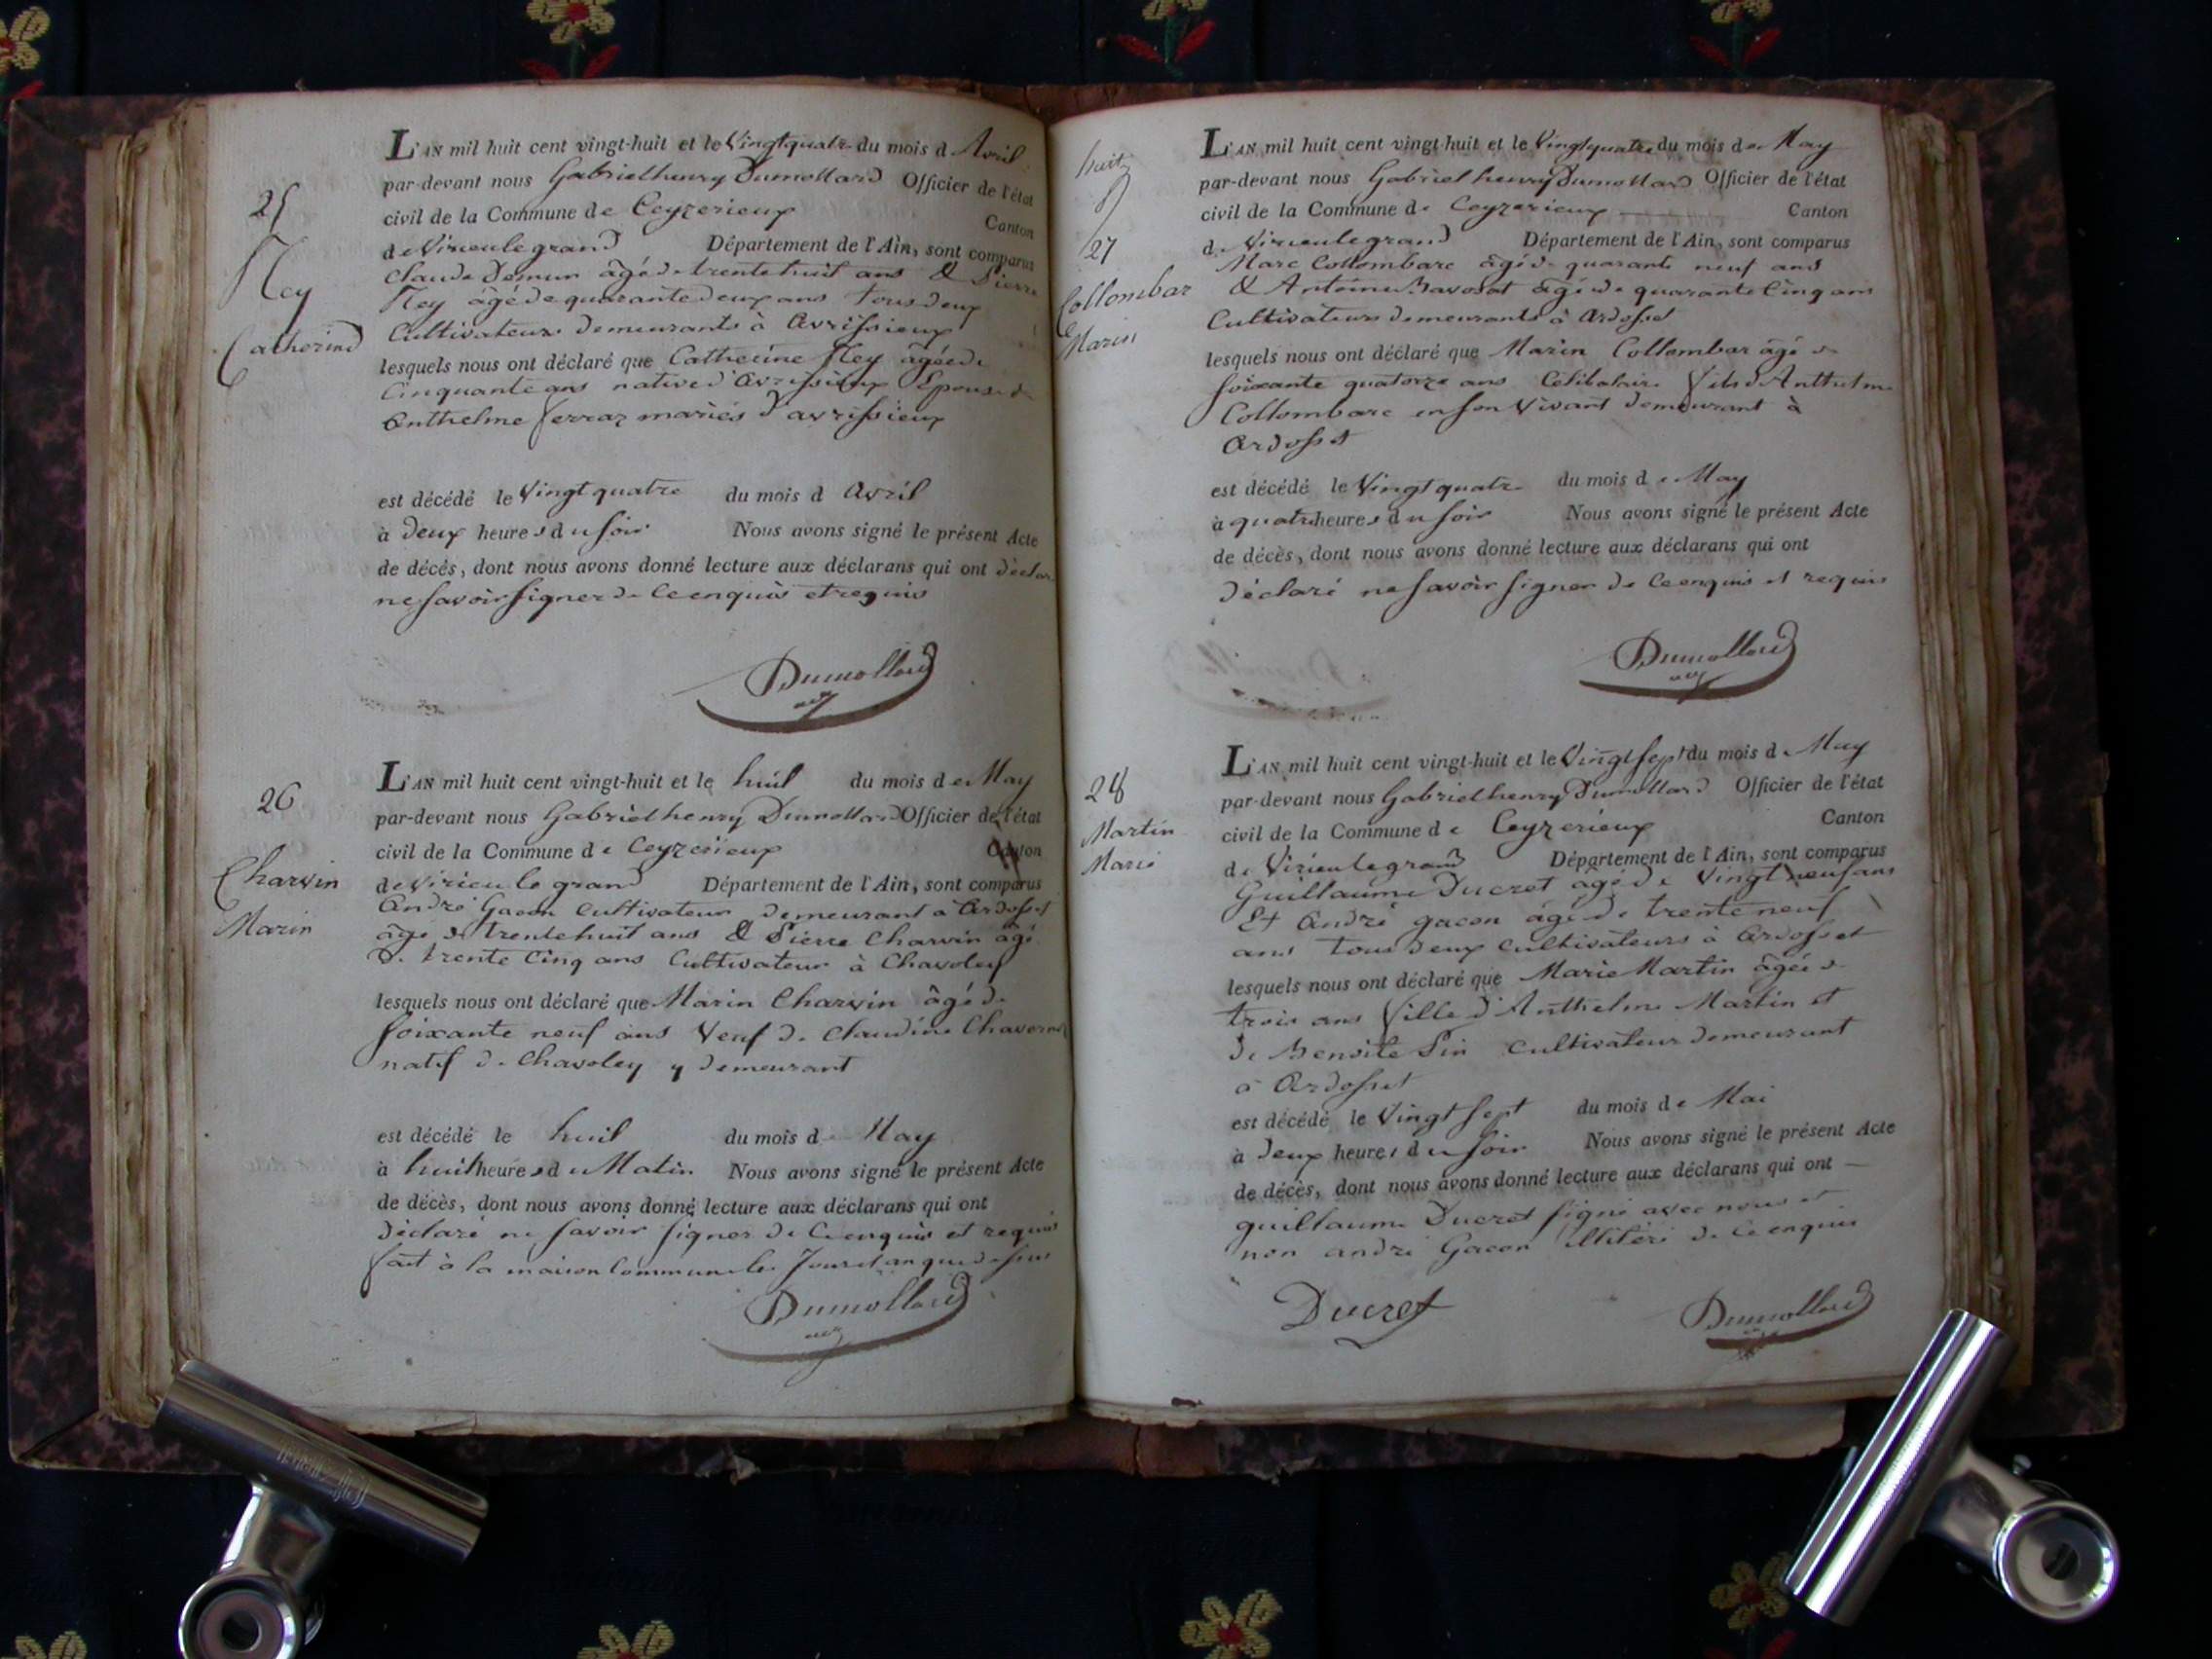 25
Ney
Catherine
L'AN mil huit cent vingt-huit et le Vingtquatre du mois d Avril
par-devant nous Gabriel henry Dumollard Officier de l'état
civil de la Commune de Ceyzerieux Canton
de Virieu le grand Département de l'Ain, sont comparus
Claude Demun âgé de trente huit ans & Pierre
Ney âgé de quarante deux ans tous deux
Cultivateurs demeurants à Avrissieux
lesquels nous ont déclaré que Catherine Ney âgée de
Cinquante ans native d'Avrissieux Epouse de
Anthelme ferraz mariés d'avrissieux
est décédé le Vingt quatre du mois d Avril
à deux heures du soir Nous avons signé le présent Acte
de décés, dont nous avons donné lecture aux déclarans qui ont déclaré
ne savoir signer de Ce enquis et requis
Dumollard
26
Charvin
Marin
L'AN mil huit cent vingt-huit et le huit du mois de May
par-devant nous Gabriel henry Dumollard Officier de l'état
civil de la Commune de Ceyzerieux Canton
de Virieu le grand Département de l'Ain, sont comparus
André Gacon Cultivateur demeurant à Ardosset
âgé de trente huit ans & Pierre Charvin âgé
de trente Cinq ans Cultivateur à Chavoley
lesquels nous ont déclaré que Marin Charvin âgé de
soixante neuf ans Veuf de Claudine
natif de Chavoley y demeurant
est décédé le huit du mois d May
à huit heures du Matin Nous avons signé le présent Acte
de décès, dont nous avons donné lecture aux déclarans qui ont
déclaré ne savoir signer de Ce enquis et requis
fait à la maison Commune les Jour et an que dessus
Dumollard
huit
8
27
Collombar
Marin
L'AN mil huit cent vingt-huit et le Vingtquatre du mois de May
par-devant nous Gabriel henry Dumollard Officier de l'état
civil de la Commune de Ceyzerieux Canton
de Virieu le grand Département de l'Ain, sont comparus
Marc Collombarc âgé de quarante neuf ans
& Antoine Bavosat âgé de quarante Cinq ans
Cultivateurs demeurants à Ardosset
lesquels nous ont déclaré que Marin Collombar âgé de
soixante quatorze ans Celibataire fils d'Anthelme
Collombarc en son Vivant demeurant à
Ardosset
est décédé le Vingt quatre du mois de May
à quatre heures du soir Nous avons signé le présent Acte
de décès, dont nous avons donné lecture aux déclarans qui ont
déclaré ne savoir signer de Ce enquis et requis
Dumollard
28
Martin
Marie
L'AN mil huit cent vingt-huit et le Vingt sept du mois d May
par-devant nous Gabriel henry Dumollard Officier de l'état
civil de la Commune de Ceyzerieux Canton
de Virieu le grand Département de l'Ain, sont comparus
Guillaume Ducret âgé de Vingt neuf ans
Et André gacon âgé de trente neuf
ans tous deux cultivateurs à Ardosset
lesquels nous ont déclaré que Marie Martin âgée de
trois ans fille d'Anthelme Martin et
de Benoite Pin cultivateur demeurant
à Ardosset
est décédé le Vingt sept du mois de Mai
à deux heures du soir Nous avons signé le présent Acte
de décès, dont nous avons donné lecture aux déclarans qui ont —
guillaume Ducret signé avec nous et
non andré Gacon illitéré de Ce enquis
Ducret
Dumollard